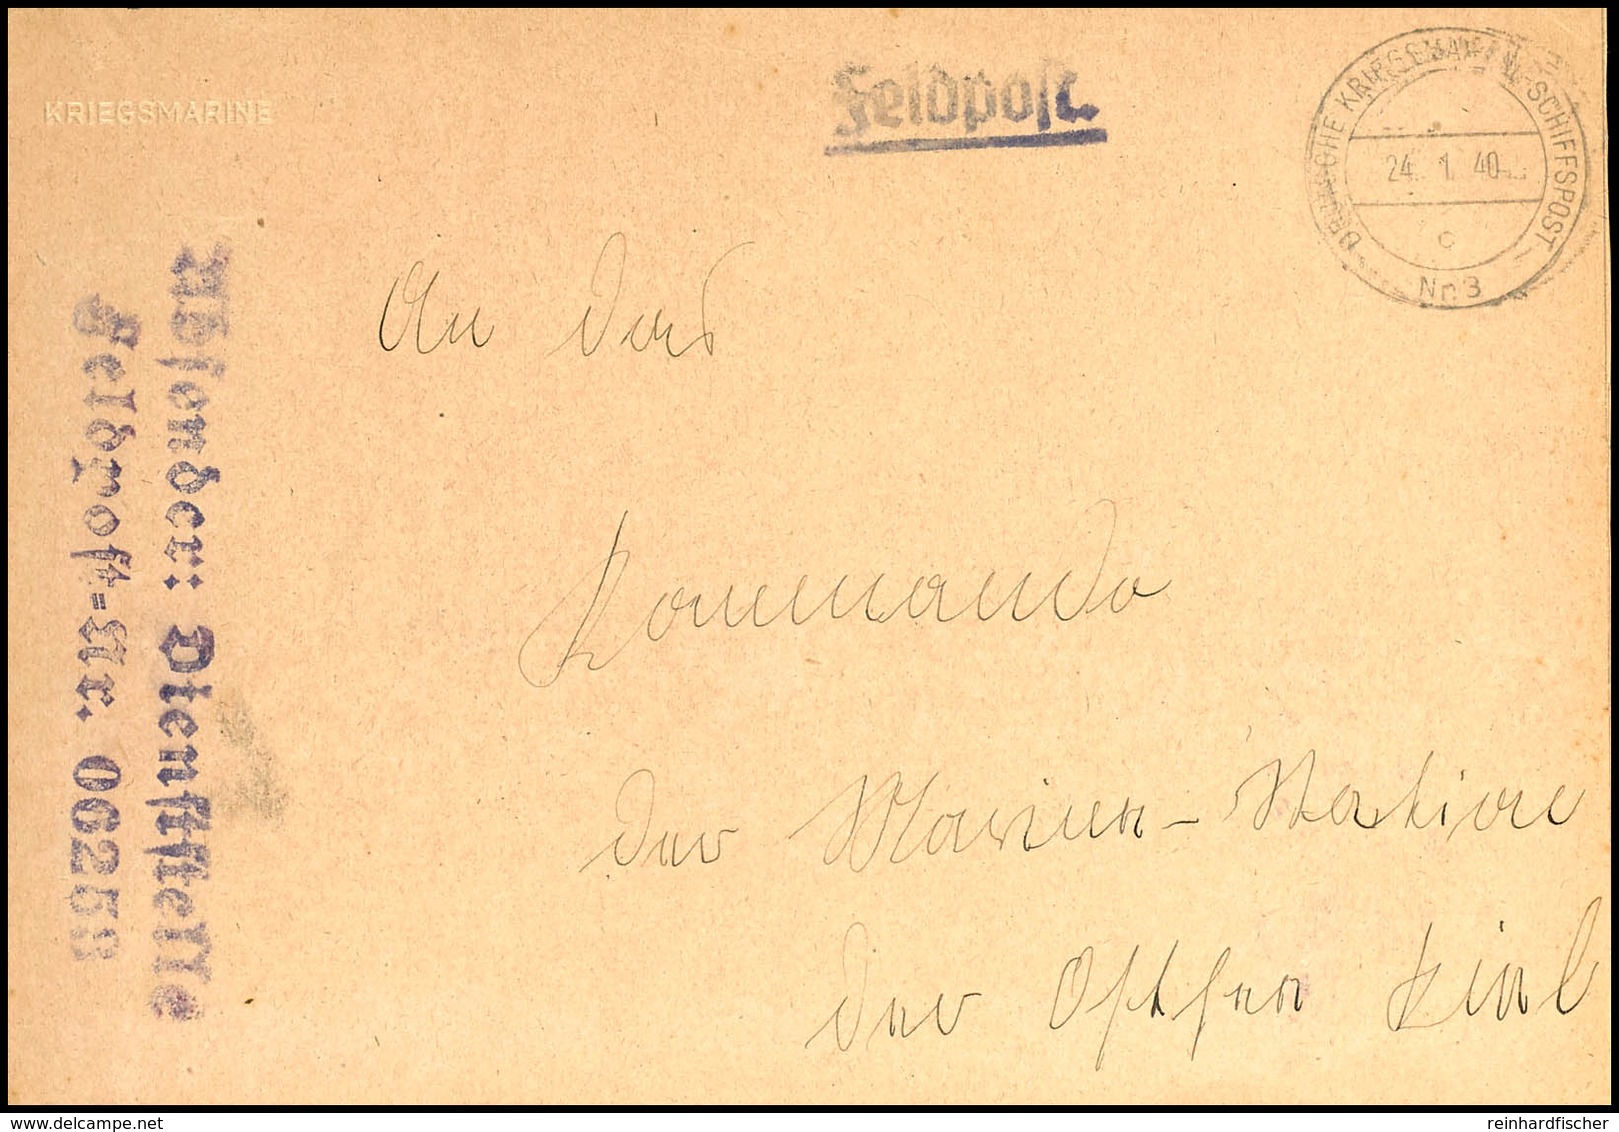 KRIEGSMARINE
Feldpost.
DEUTSCHE KRIEGSMARINE-SCHIFFSPOST
24. 1. 40
c
Nr. 3
Absender: Dienststelle
Feldpost=Nr. 06258
An das
Kommando
der Marine-Station
der Ostsee Kiel
delcampe.net
reinhardfischer